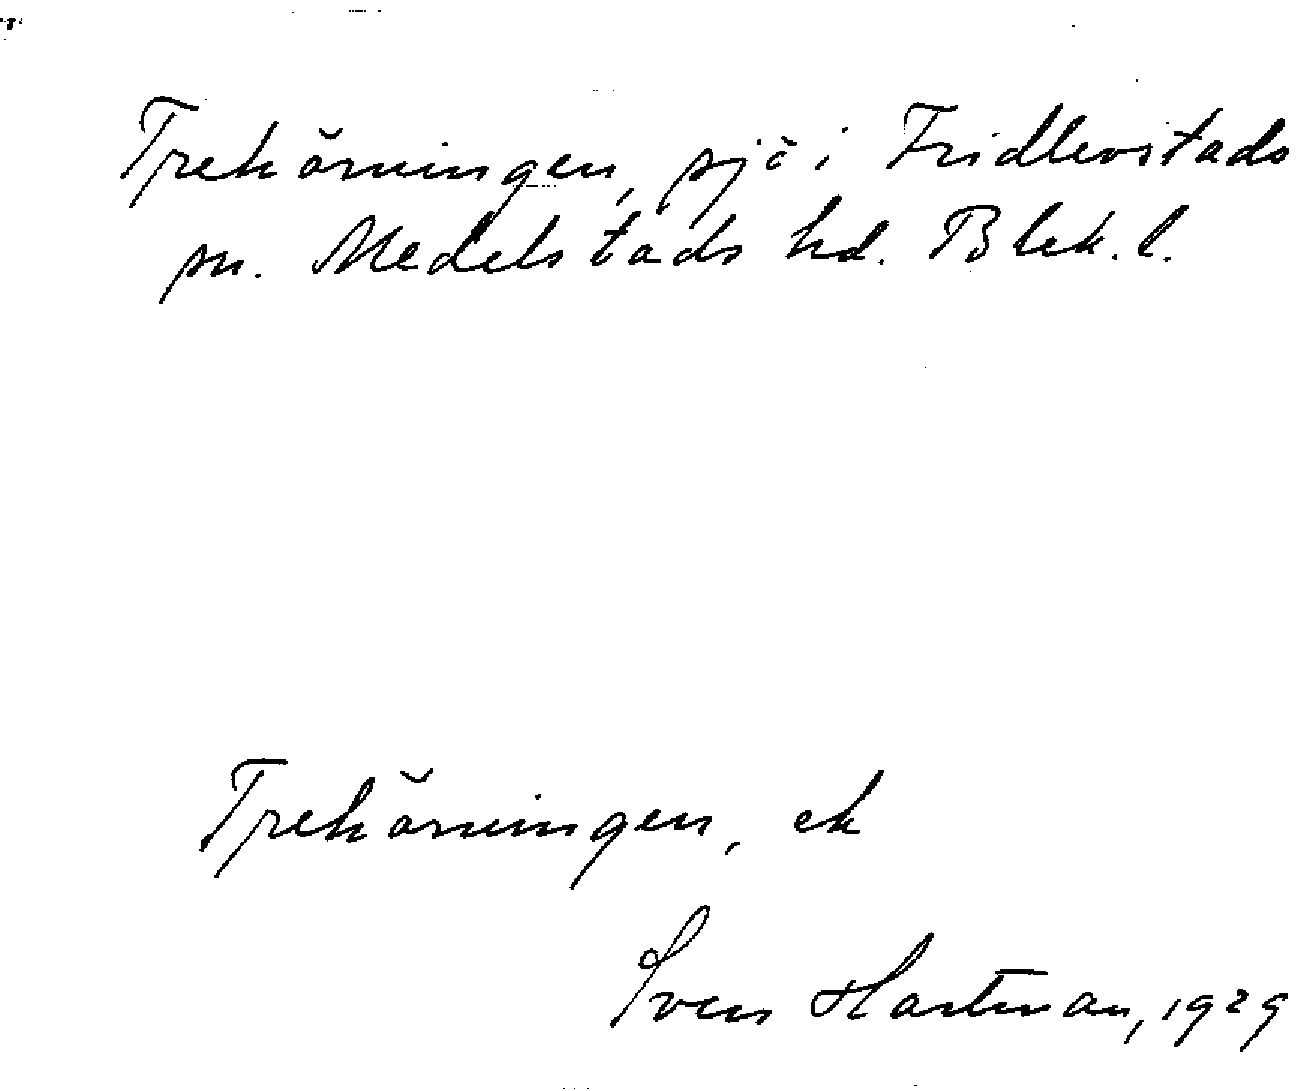 Trehörningen, sjö i Fridlevstads
sn. Medelstads hd. Blek. l.
Trehörningen, ek
Sven Hartman, 1929